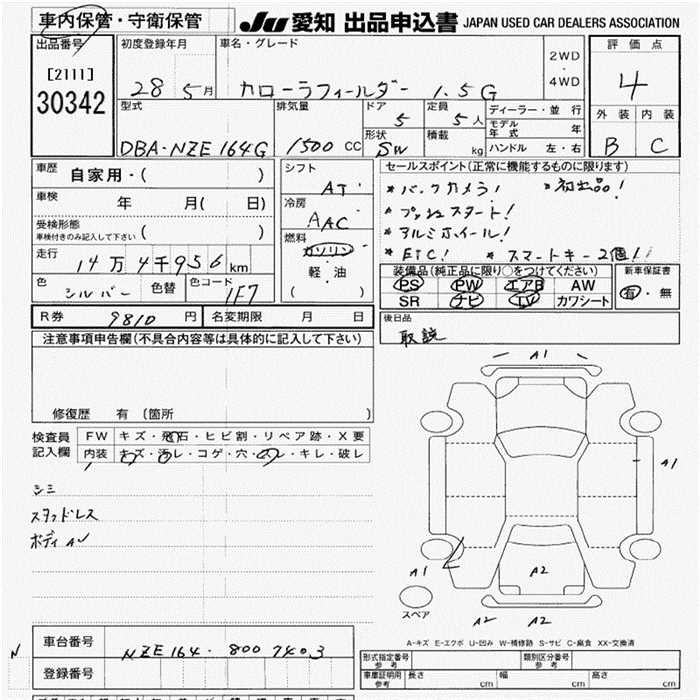 車内保管・守衛保管
JU 愛知 出品申込書 JAPAN USED CAR DEALERS ASSOCIATION
出品番号
[2111]
30342
初度登録年月
28 5月
車名・グレード
カローラフィールダー 1.5G
2WD
・
4WD
評価点
4
外装 内装
B C
型式
DBA-NZE164G
排気量
1500 cc
ドア
5
形状
SW
定員
5人
積載
kg
ディーラー・並行
モデル年式 年
ハンドル 左・右
車歴
自家用・( )
車検
年 月( 日)
受検形態
車検付きのみ記入して下さい ( )
走行
14万4千956km
色
シルバー
色替
色コード
1F7
シフト
AT
冷房
AAC
燃料
ガソリン
軽・油
( )
セールスポイント(正常に機能するものに限ります)
* バックカメラ! * 初出品!
* プッシュスタート!
* アルミホイール!
* ETC! * スマートキー2個!
装備品(純正品に限り○をつけてください)
PS PW エアB AW
SR ナビ TV カワシート
新車保証書
有・無
R券 9810 円
名変期限 月 日
後日品
取説
注意事項申告欄(不具合内容等は具体的に記入して下さい)
修復歴 有 〔箇所 〕
検査員
記入欄
FW キズ・飛石・ヒビ割・リペア跡・X要
内装 キズ・汚レ・コゲ・穴・スレ・キレ・破レ
シミ
スタッドレス
ボディAV
A1
A1
A1
A2
A2 A2
スペア
A-キズ E-エクボ U-凹み W-補修跡 S-サビ C-腐食 XX-交換済
車台番号
NZE164-8007403
登録番号
N
形式指定番号
参考
類別区分番号
参考
車庫証明用
参考
長さ cm
幅 cm
高さ cm